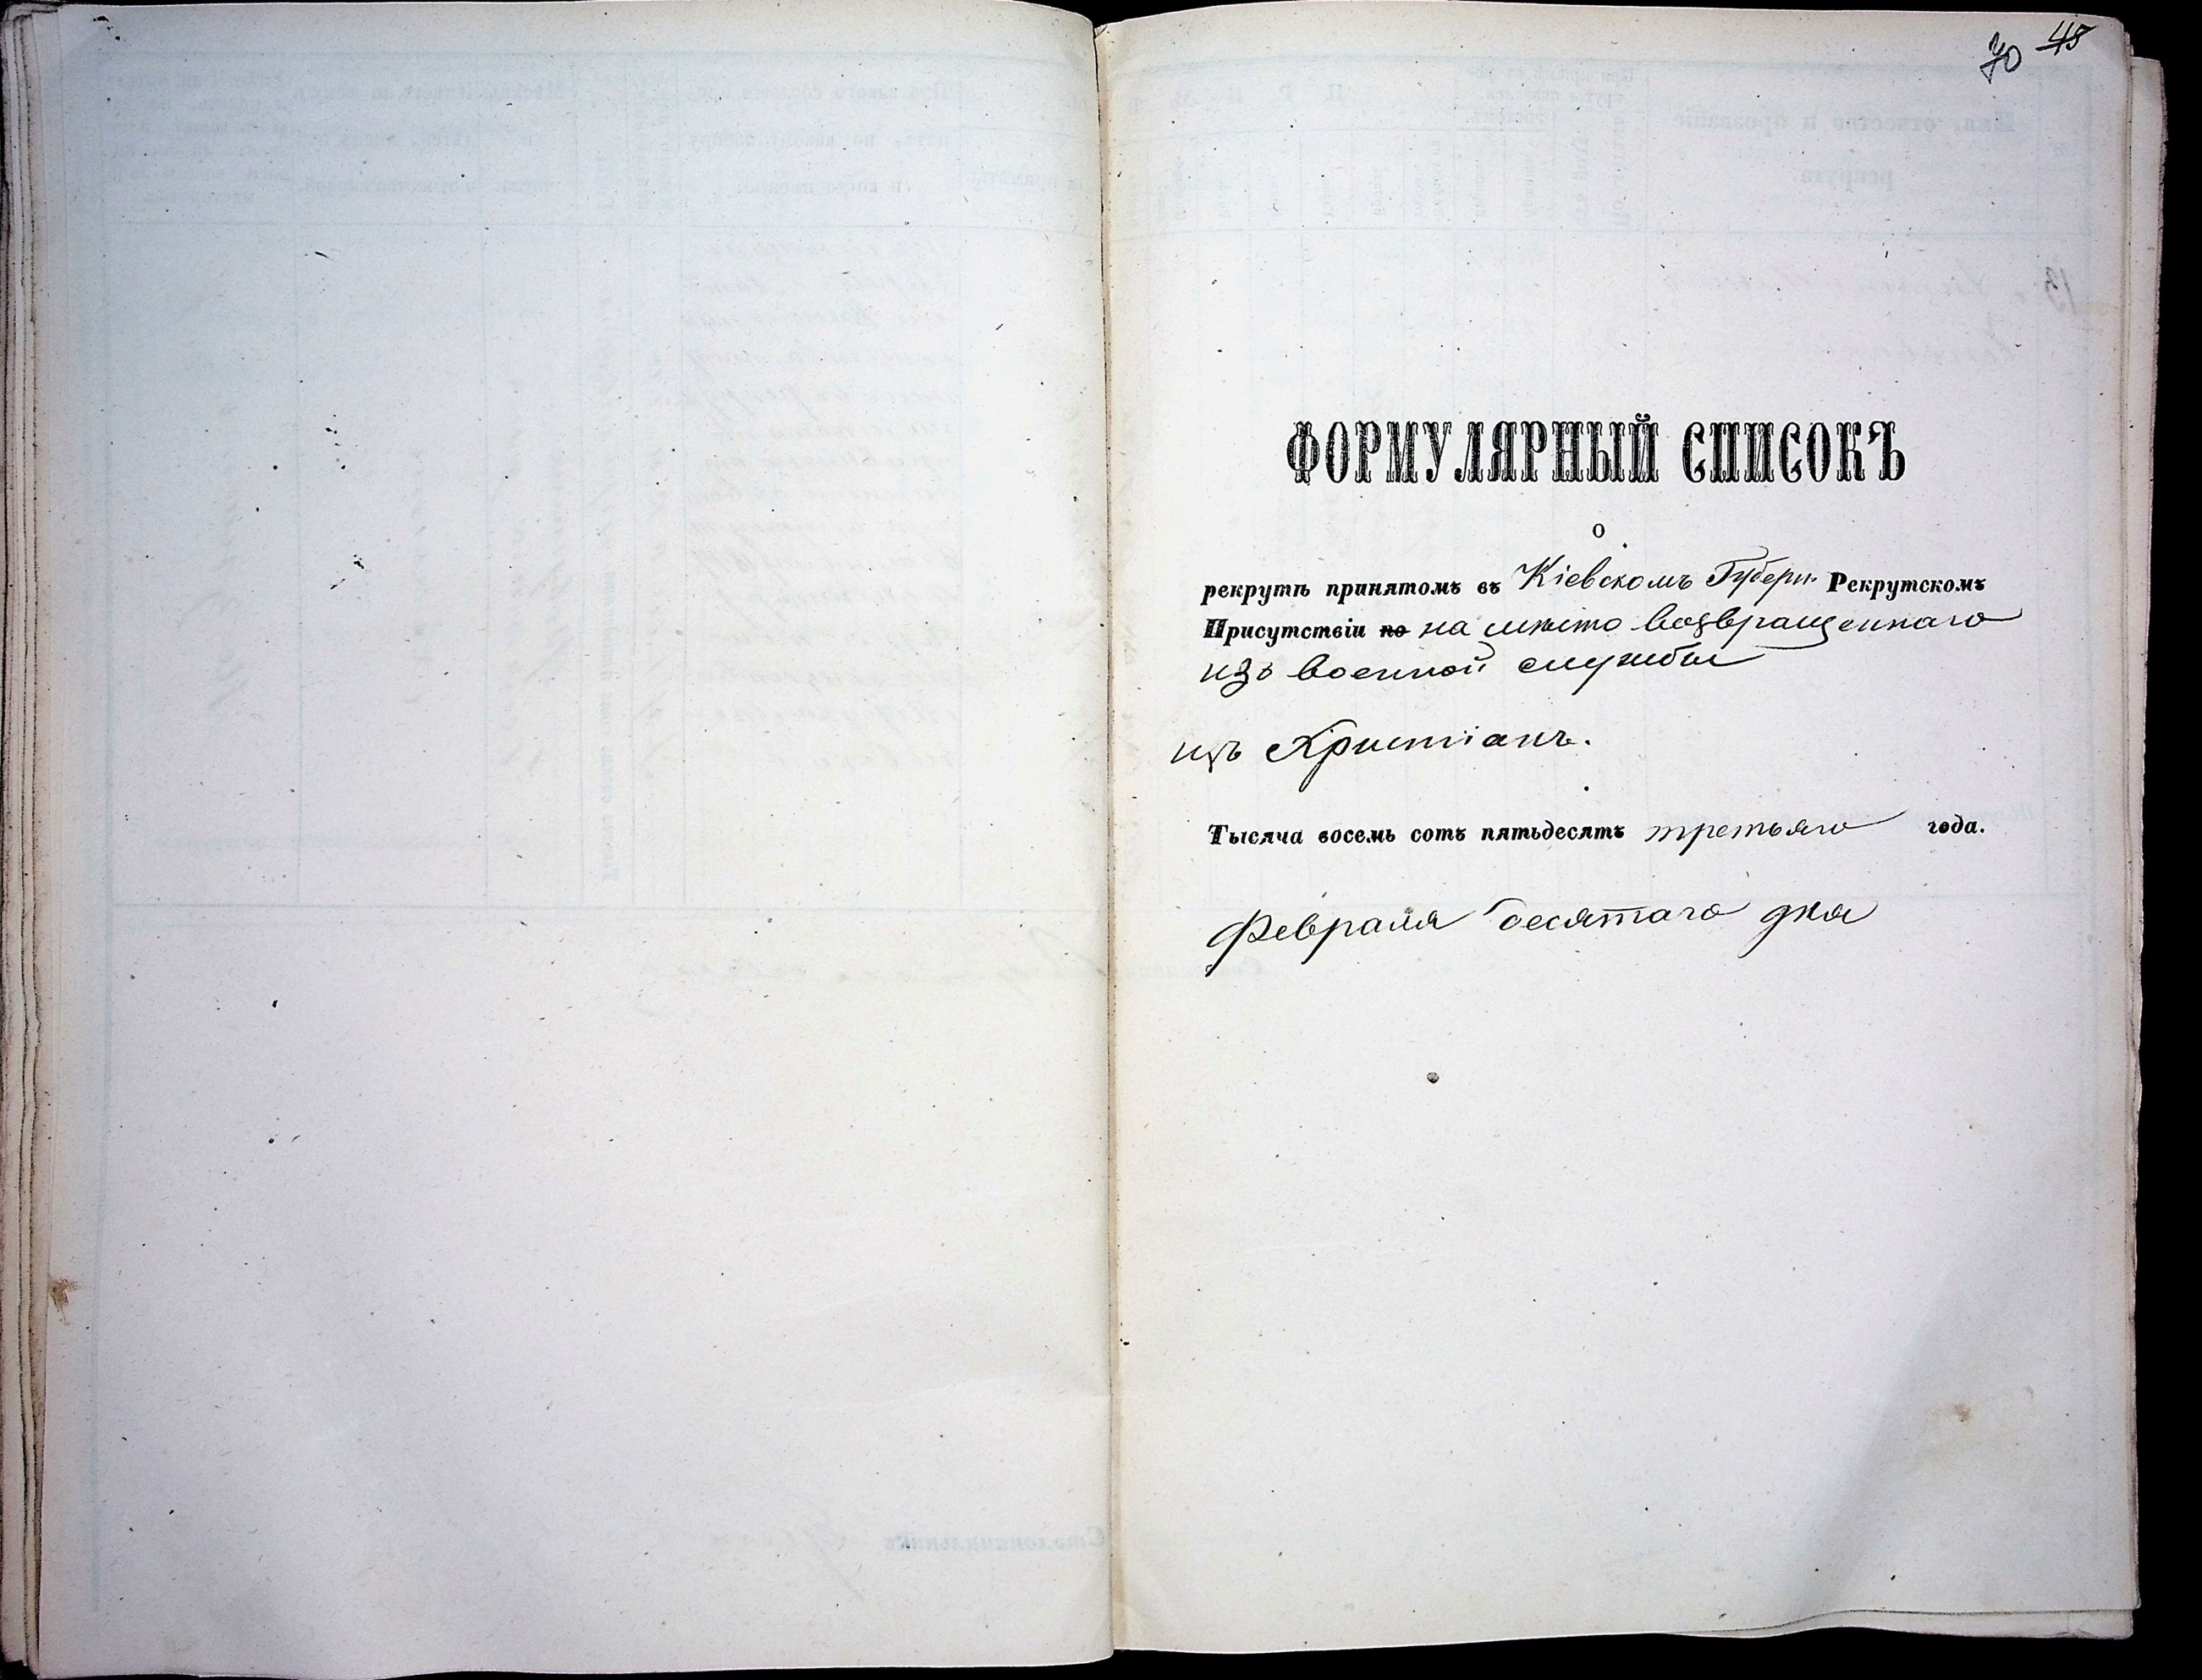 70 45
ФОРМУЛЯРНЫЙ СПИСОКЪ
о
рекрутѣ принятомъ въ Кіевскомъ Губерн. Рекрутскомъ
Присутствіи по на мѣсто возвращеннаго
изъ военной службы
изъ Христіанъ.
Тысяча восемь сотъ пятьдесятъ третьяго года.
Февраля десятаго дня